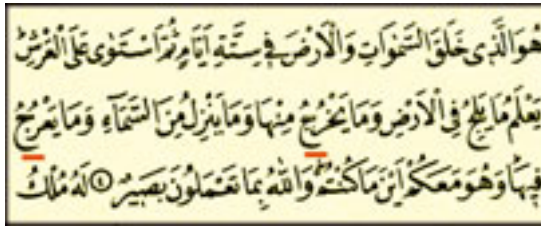 هُوَ الَّذِى خَلَقَ السَّمٰوَاتِ وَالْاَرْضَ فِى سِتَّةِ اَيَّامٍ ثُمَّ اسْتَوٰى عَلَى الْعَرْشِ
يَعْلَمُ مَا يَلِجُ فِى الْاَرْضِ وَمَا يَخْرُجُ مِنْهَا وَمَا يَنْزِلُ مِنَ السَّمَآءِ وَمَا يَعْرُجُ
فِيهَا وَهُوَ مَعَكُمْ اَيْنَ مَا كُنْتُمْ وَاللّٰهُ بِمَا تَعْمَلُونَ بَصِيرٌ ﴿٤﴾ لَهُ مُلْكُ